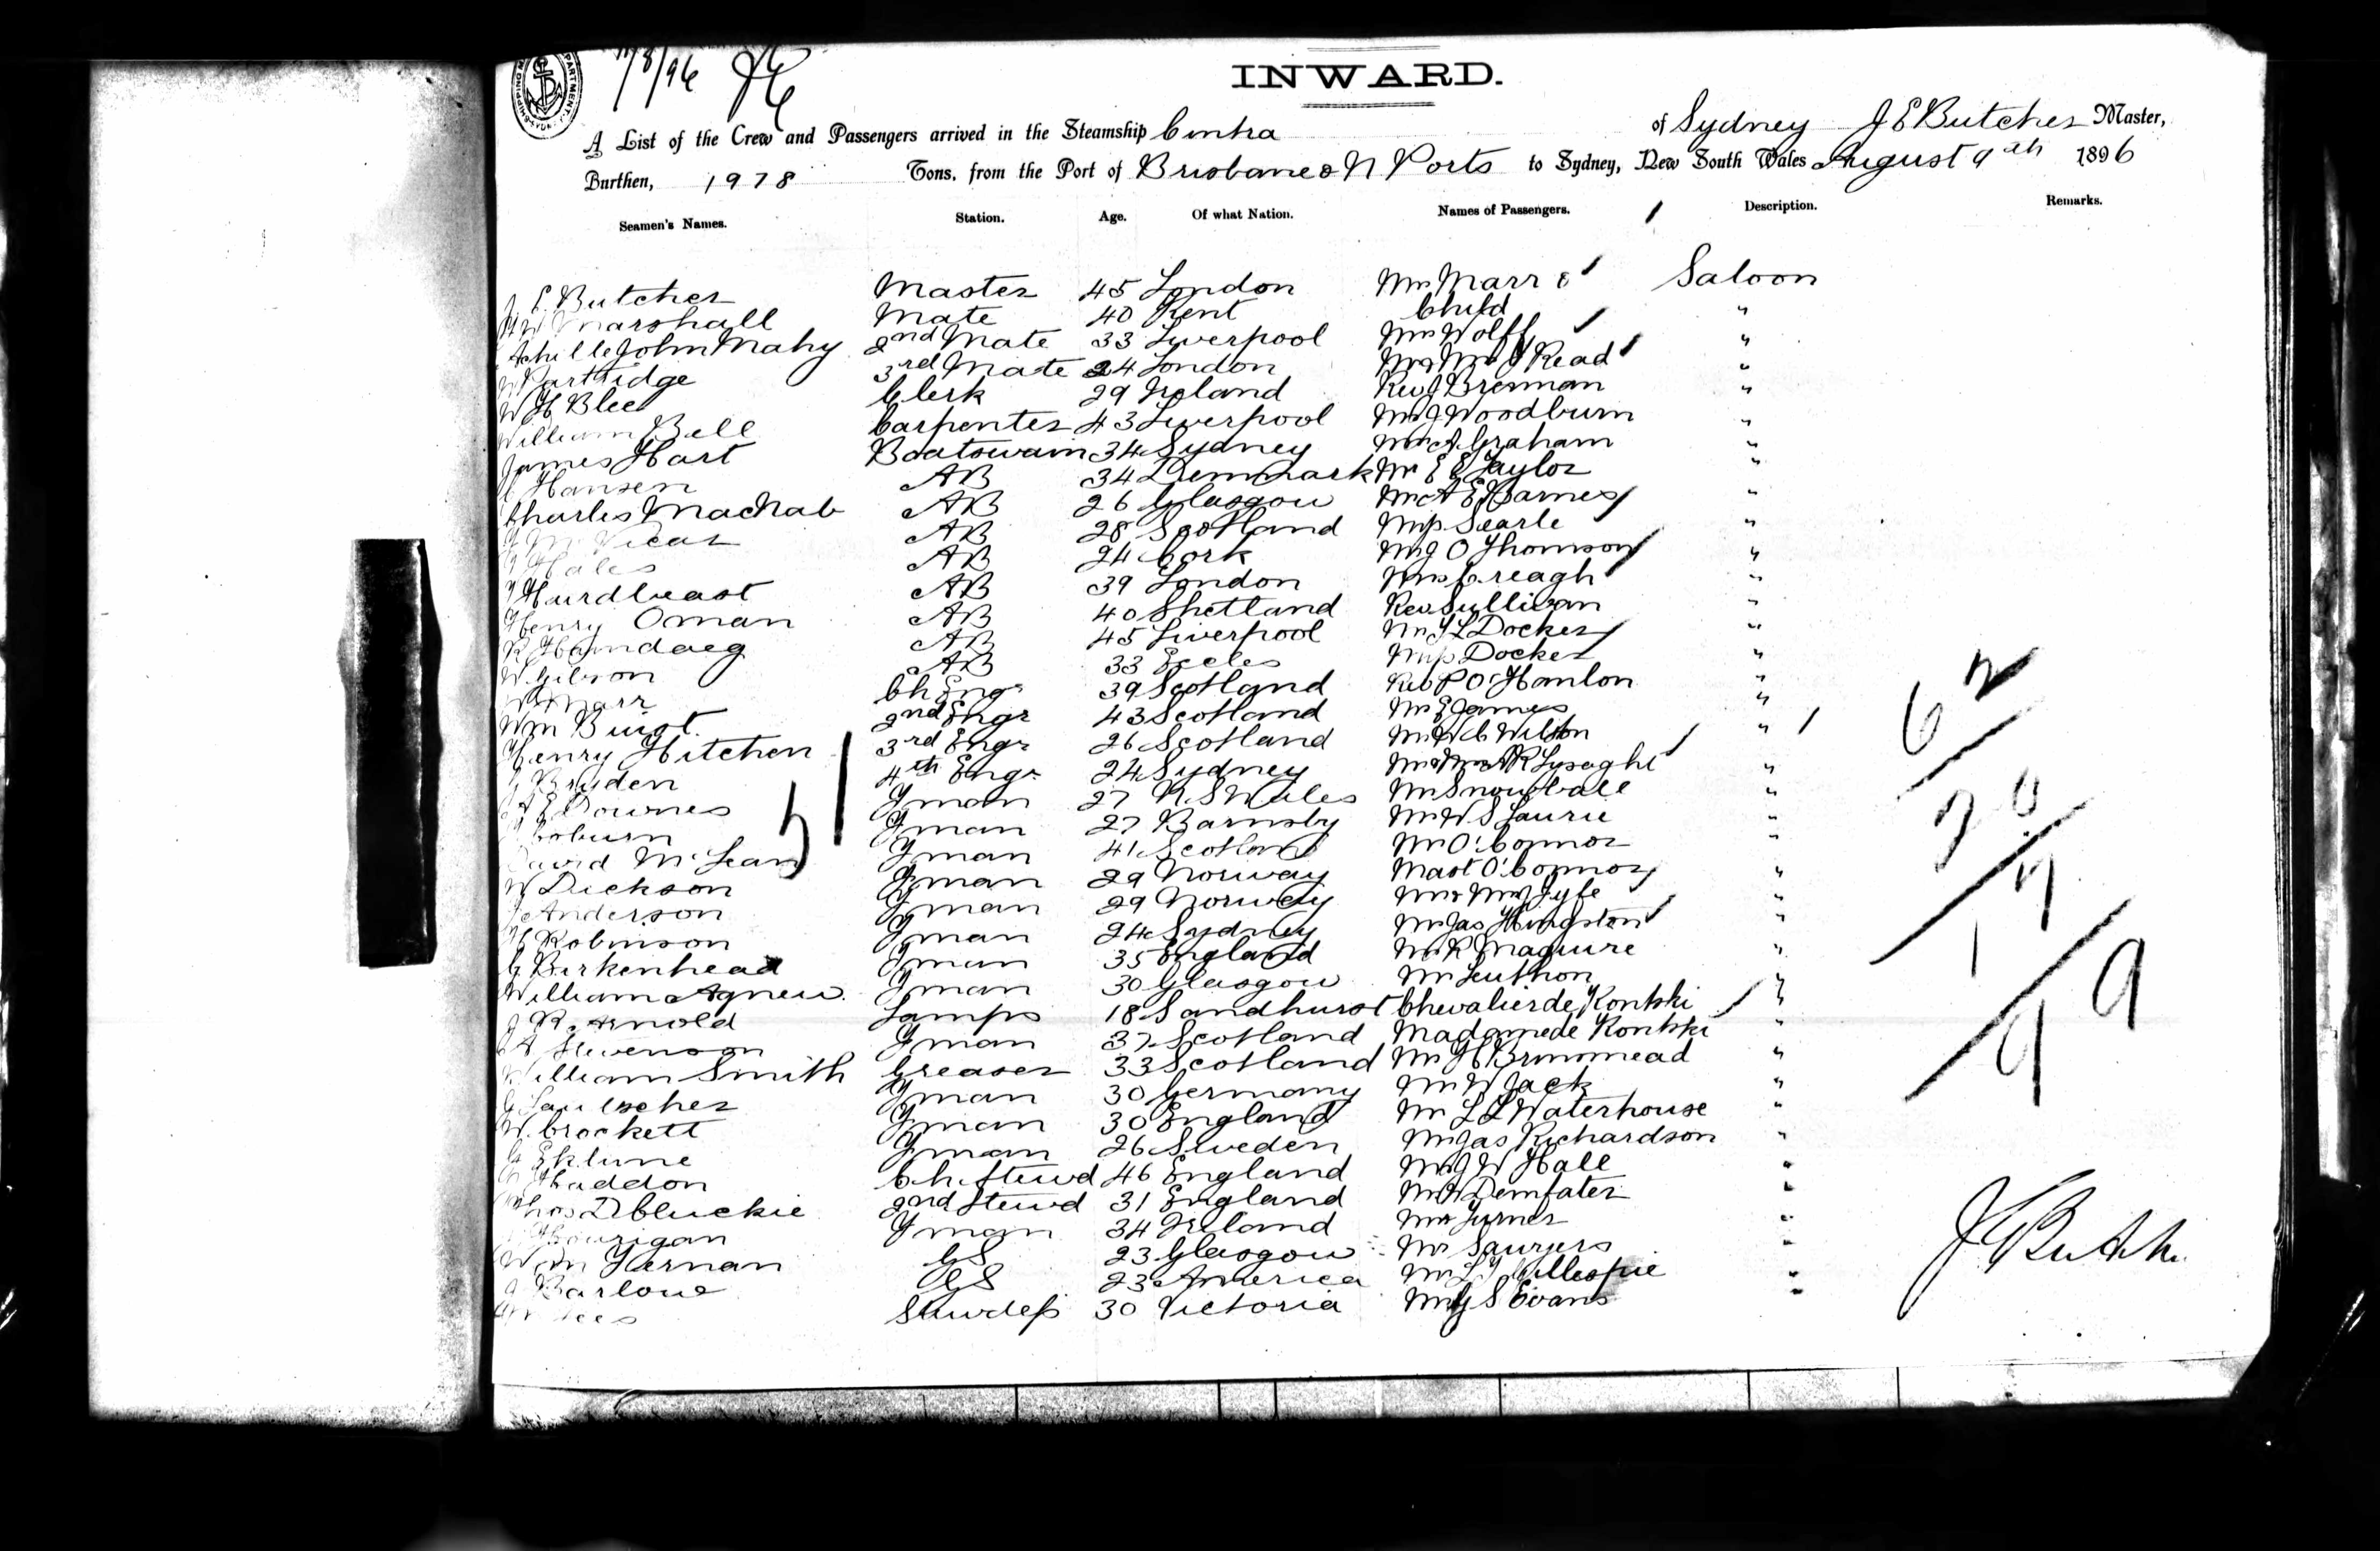 11/8/96
INWARD.
A List of the Crew and Passengers arrived in the Steamship Cintra of Sydney J E Butcher Master,
Burthen, 1978 Tons, from the Port of Brisbane & N Ports to Sydney, New South Wales August 9th 1896
Seamen's Names. Station. Age. Of what Nation. Names of Passengers. Description. Remarks.
J E Butcher Master 45 London Mrs Marr & Saloon
Marshall Mate 40 Kent Child "
Achille John Mahy 2nd Mate 33 Liverpool Mrs Wolff "
W Partridge 3rd Mate 24 London Mr & Mrs J Read "
W H Blee Clerk 29 Ireland Rev J Brennan "
William Bell Carpenter 43 Liverpool Mr J Woodburn "
James Hart Boatswain 34 Sydney Mr A Graham "
Hansen AB 34 Denmark Mr E E Taylor "
Charles MacNab AB 26 Glasgow Mr A E Barnes "
McVicar AB 28 Scotland Miss Searle "
Hales AB 24 Cork Mr J O Thomson "
Hardbeast AB 39 London Mrs Creagh "
Henry Oman AB 40 Shetland Rev Sullivan "
R AB 45 Liverpool Mr L Docker "
W Gibson AB 33 Eccles Miss Docker "
Marr Ch Engr 39 Scotland Rev P O'Hanlon "
Wm Buist 2nd Engr 43 Scotland Mr E James "
Henry Hitchen 3rd Engr 26 Scotland Mr W C Wilson "
Bryden 4th Engr 24 Sydney Mr & Mrs A R Lysaght "
A E Downes Fman 27 N S Wales Mr Snowball "
Coburn Fman 27 Barnsby Mr W S Laurie "
David McLean Fman 41 Scotland Mr O'Connor "
W Dickson Fman 29 Norway Mast O'Connor "
Anderson Fman 29 Norway Mr & Mrs Fyfe "
Robinson Fman 24 Sydney Mr Jas Hingston "
G Birkenhead Fman 35 England Mr R Maguire "
William Agnew Fman 30 Glasgow Mr "
J R Arnold Lamps 18 Sandhurst Chevalier de Kontski "
J A Stevenson Fman 37 Scotland Madame de Kontski "
William Smith Greaser 33 Scotland Mr H Brinsmead "
G Fman 30 Germany Mr W Jack "
W. Crockett Fman 30 England Mr L L Waterhouse "
Eklune Fman 26 Sweden Mr Jas Richardson "
Haddon Ch. Stewd 46 England Mr J W Hall "
Thos D Cluckie 2nd Stewd 31 England Mr A "
Hourigan Fman 34 Ireland Mr Turner "
Wm Fernan GS 23 Glasgow Mr Sawyers "
J Barlow GS 23 America Mr Gillespie "
Lees Stewdess 30 Victoria Mr G S Evans
62
20
17
99
J E Butcher